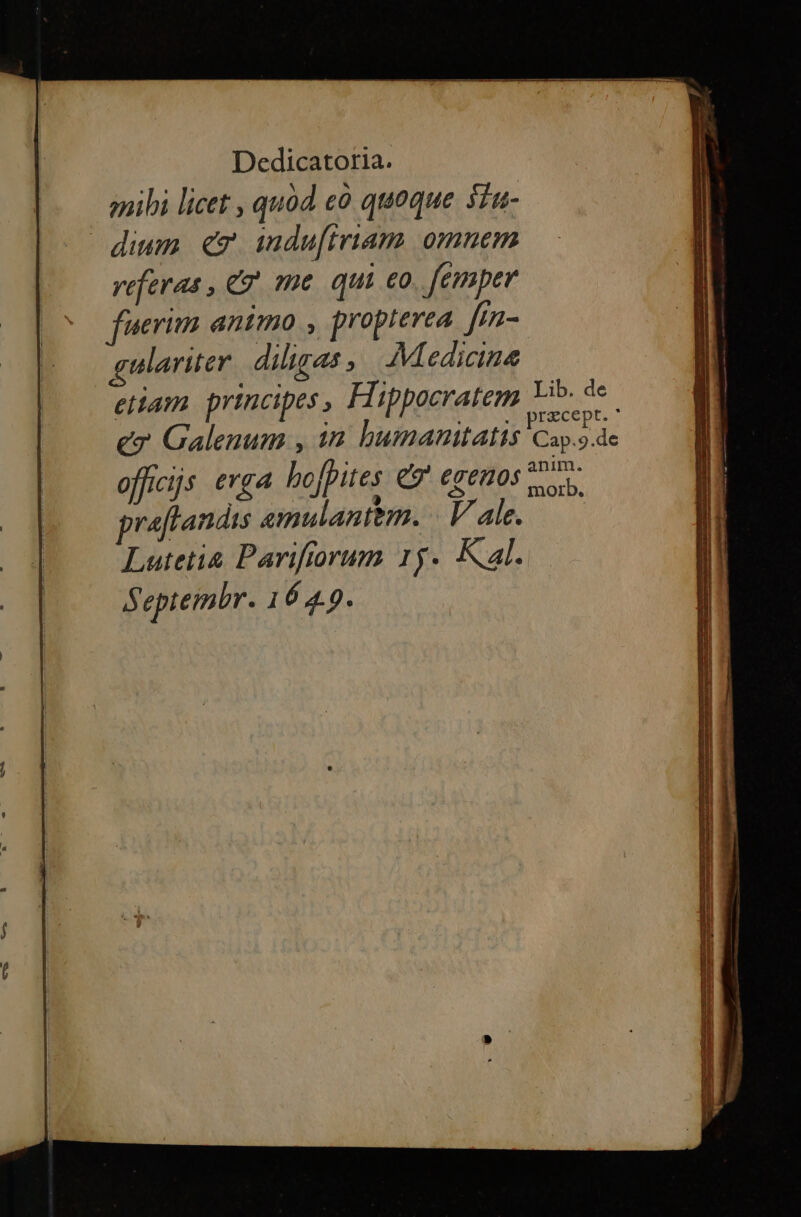 Dedicatoria.
mihi licet, quòd eò quoque ſtu-
dium & induſtriam omnem
referas, & me qui eo ſemper
fuerim animo, propterea ſin-
gulariter diligas, Medicinæ
etiam principes, Hippocratem
& Galenum, in humanitatis
officijs erga hoſpites & egenos
præſtandis æmulantem. Vale.
Lutetiæ Pariſiorum 15. Kal.
Septembr. 1649.
Lib. de
præcept.
Cap.9.de
anim.
morb.